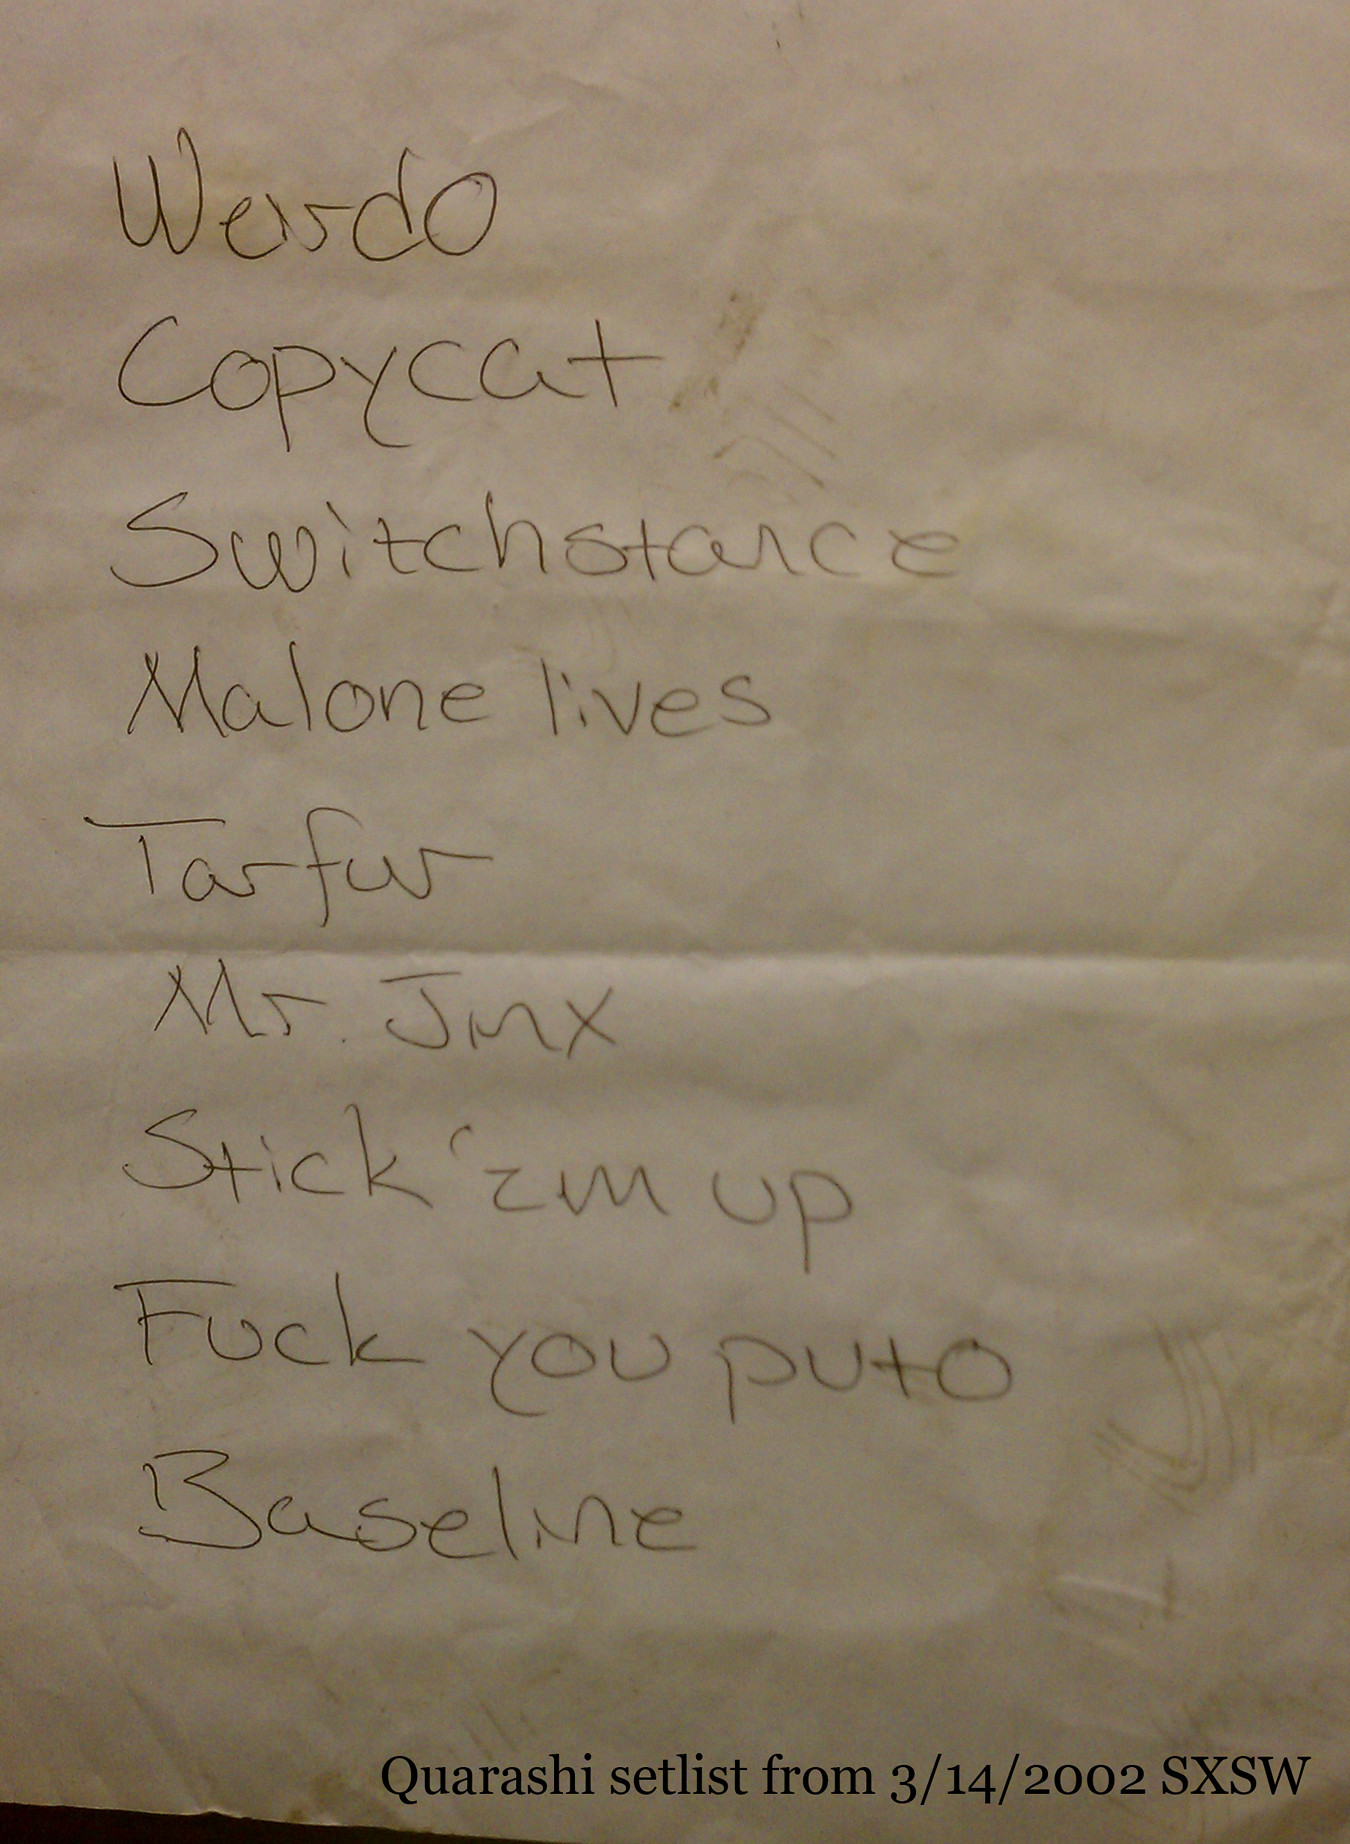 Weirdo
Copycat
Switchstance
Malone lives
Tarfur
Mr. Jinx
Stick 'em up
Fuck you puto
Baseline
Quarashi setlist from 3/14/2002 SXSW